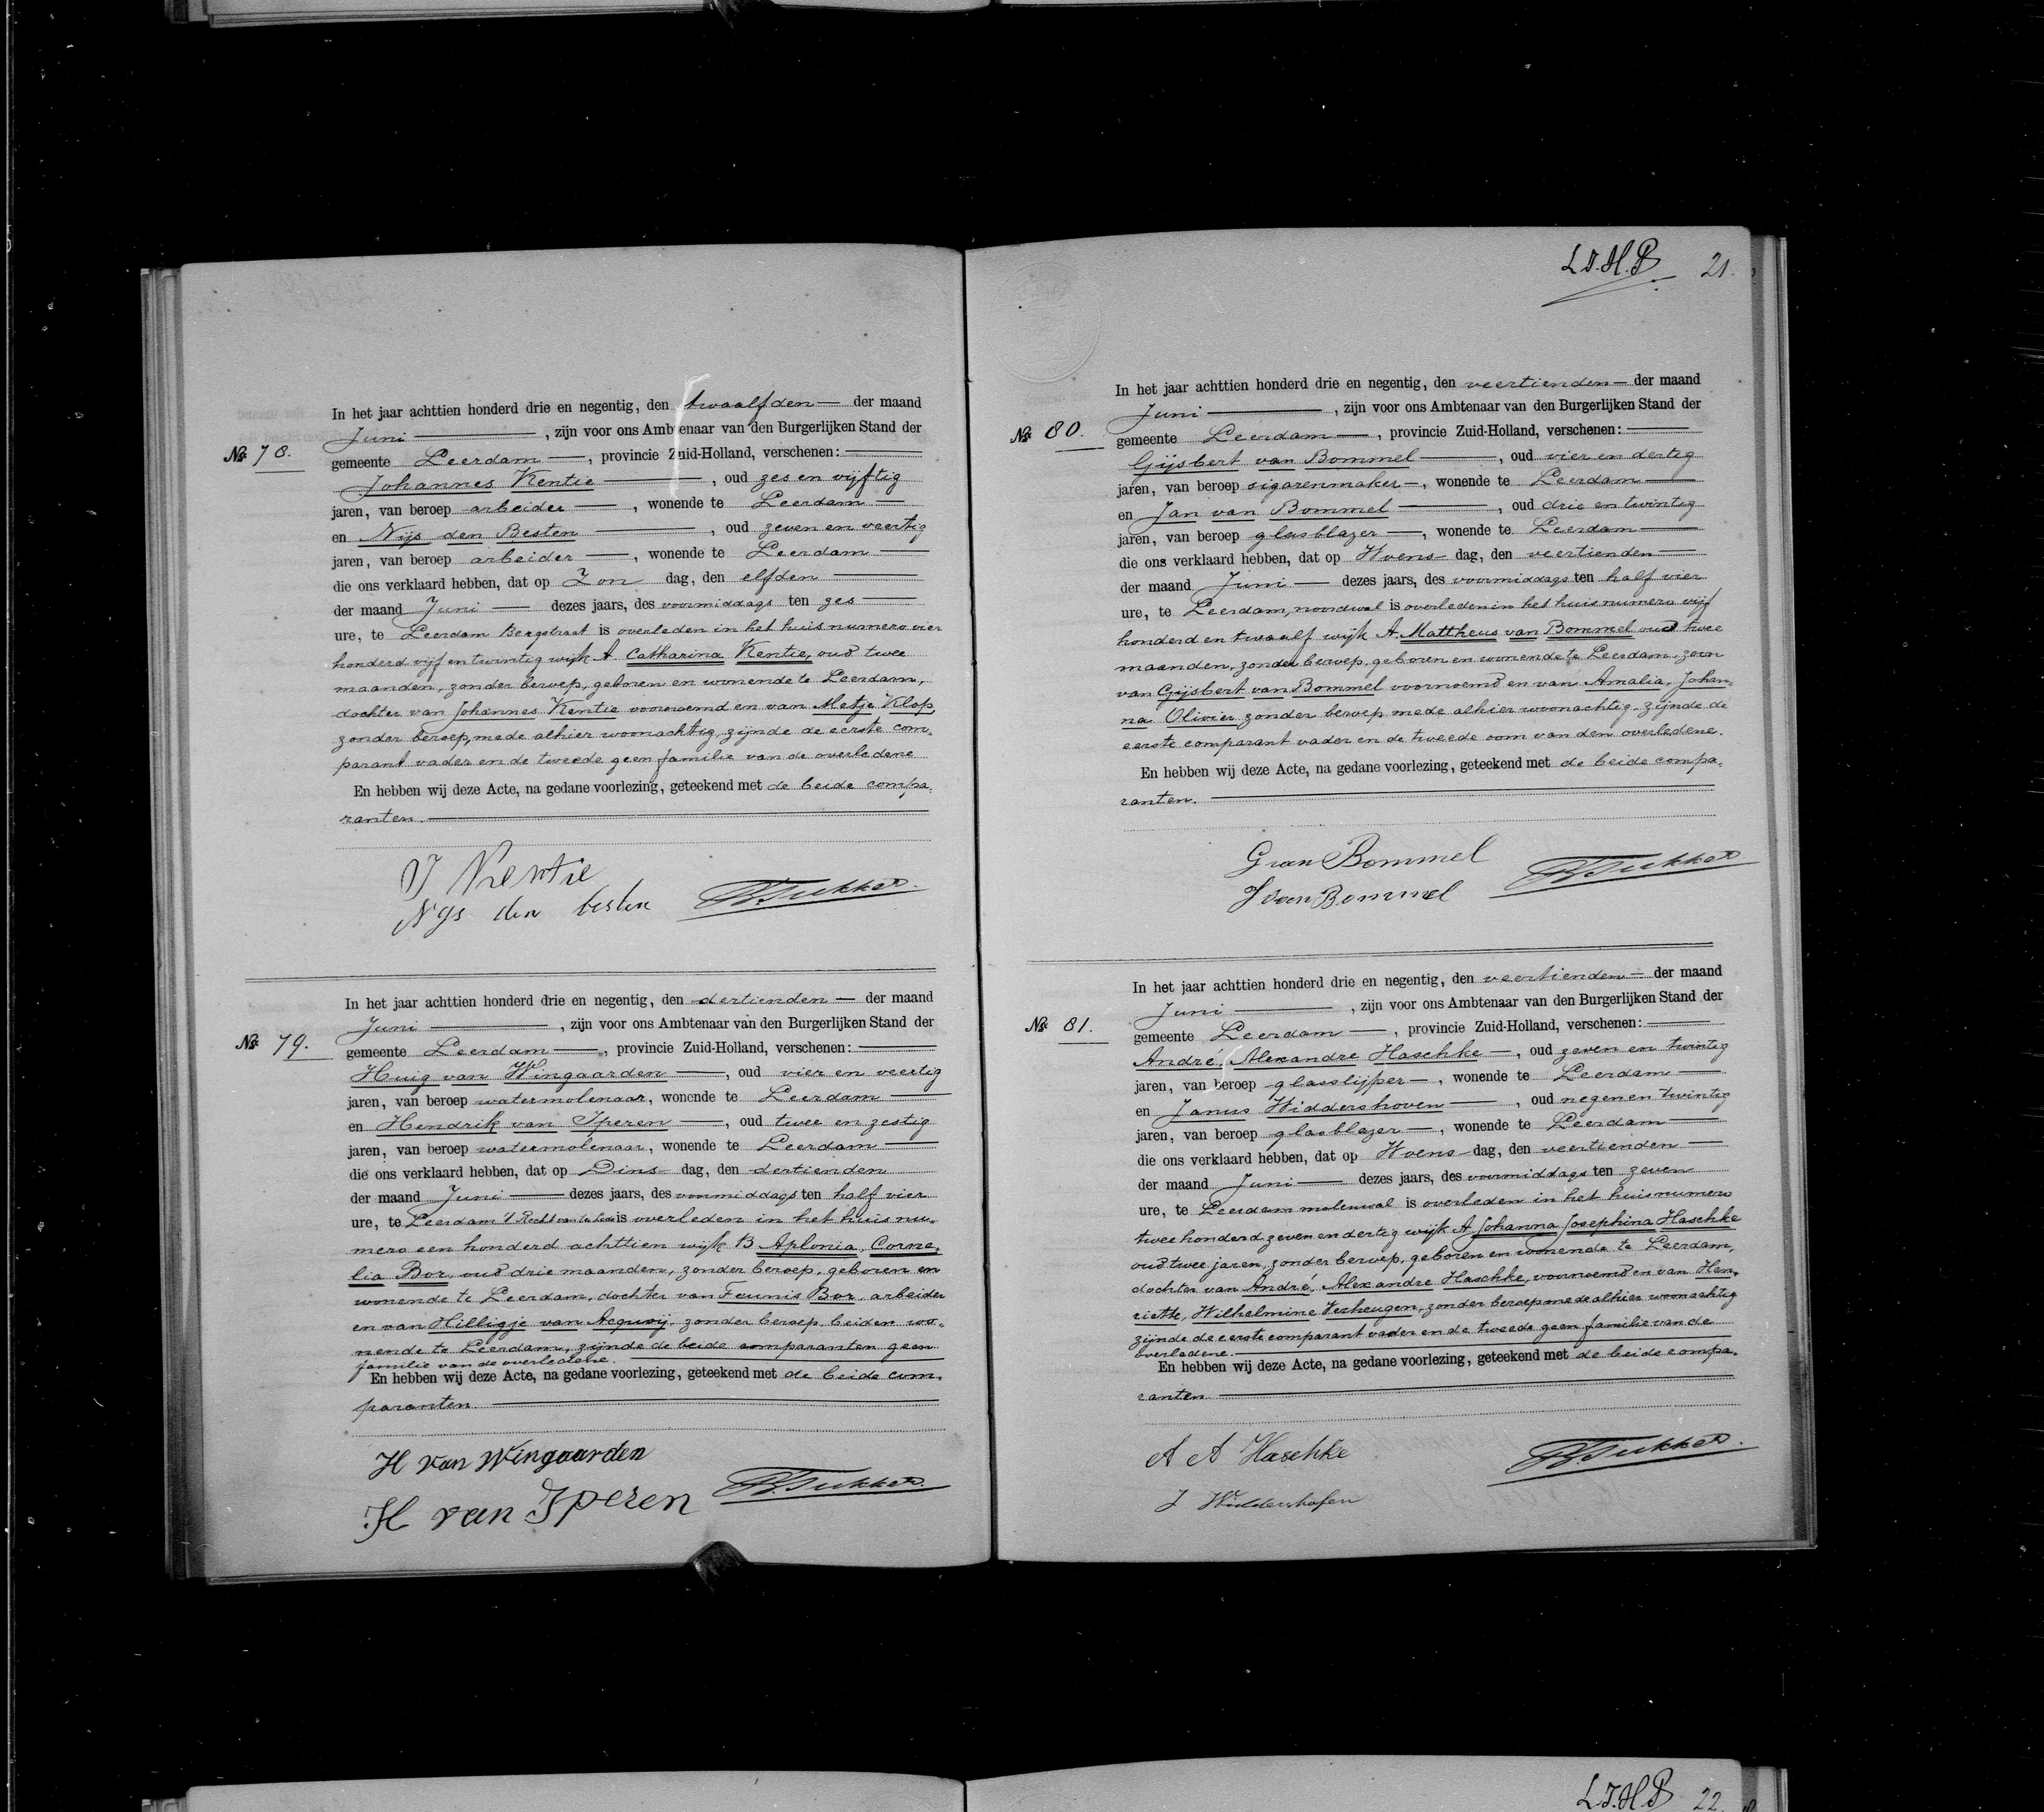 In het jaar achttien honderd drie en negentig, den twaalfden — der maand
Juni —, zijn voor ons Ambtenaar van den Burgerlijken Stand der
No. 78.
gemeente Leerdam —, provincie Zuid-Holland, verschenen: —
Johannes Kentie —, oud zes en vijftig
jaren, van beroep arbeider —, wonende te Leerdam —
en Nijs den Besten —, oud zeven en veertig
jaren, van beroep arbeider —, wonende te Leerdam —
die ons verklaard hebben, dat op Zon dag, den elfden —
der maand Juni — dezes jaars, des voormiddags ten zes —
ure, te Leerdam Bergstraat is overleden in het huis numero vier
honderd vijf en twintig wijk A Catharina Kentie, oud twee
maanden, zonder beroep, geboren en wonende te Leerdam,
dochter van Johannes Kentie voornoemd en van Metje Klop,
zonder beroep, mede alhier woonachtig, zijnde de eerste com-
parant vader en de tweede geen familie van de overledene
En hebben wij deze Acte, na gedane voorlezing, geteekend met de beide compa-
ranten. —
J Kentie
Nys den besten
In het jaar achttien honderd drie en negentig, den dertienden — der maand
Juni —, zijn voor ons Ambtenaar van den Burgerlijken Stand der
No. 79.
gemeente Leerdam —, provincie Zuid-Holland, verschenen: —
Huig van Wingaarden —, oud vier en veertig
jaren, van beroep watermolenaar, wonende te Leerdam —
en Hendrik van Iperen —, oud twee en zestig
jaren, van beroep watermolenaar, wonende te Leerdam —
die ons verklaard hebben, dat op Dins dag, den dertienden
der maand Juni — dezes jaars, des voormiddags ten half vier
ure, te Leerdam 't Recht van ter Leede is overleden in het huis nu-
mero een honderd achttien wijk B Aplonia, Corne-
lia Bor, oud drie maanden, zonder beroep, geboren en
wonende te Leerdam, dochter van Teunis Bor, arbeider
en van Hilligje van Acquoij, zonder beroep, beiden wo-
nende te Leerdam, zijnde de beide comparanten geen
familie van de overledene.
En hebben wij deze Acte, na gedane voorlezing, geteekend met de beide com-
paranten. —
H van Wingaarden
H van Iperen
L.J.H.B 21.
In het jaar achttien honderd drie en negentig, den veertienden — der maand
Juni —, zijn voor ons Ambtenaar van den Burgerlijken Stand der
No. 80.
gemeente Leerdam —, provincie Zuid-Holland, verschenen: —
Gijsbert van Bommel —, oud vier en dertig
jaren, van beroep sigarenmaker —, wonende te Leerdam —
en Jan van Bommel —, oud drie en twintig
jaren, van beroep glasblazer —, wonende te Leerdam —
die ons verklaard hebben, dat op Woens dag, den veertienden —
der maand Juni — dezes jaars, des voormiddags ten half vier
ure, te Leerdam, noordwal is overleden in het huis numero vijf
honderd en twaalf wijk A. Mattheus van Bommel oud twee
maanden, zonder beroep, geboren en wonende te Leerdam, zoon
van Gijsbert van Bommel voornoemd en van Amalia, Johan-
na Olivier zonder beroep mede alhier woonachtig zijnde de
eerste comparant vader en de tweede oom van den overledene.
En hebben wij deze Acte, na gedane voorlezing, geteekend met de beide compa-
ranten. —
G van Bommel
J van Bommel
In het jaar achttien honderd drie en negentig, den veertienden — der maand
Juni —, zijn voor ons Ambtenaar van den Burgerlijken Stand der
No. 81.
gemeente Leerdam —, provincie Zuid-Holland, verschenen: —
André, Alexandre Haschke —, oud zeven en twintig
jaren, van beroep glasslijper —, wonende te Leerdam —
en Janus Widdershoven —, oud negen en twintig
jaren, van beroep glasblazer —, wonende te Leerdam —
die ons verklaard hebben, dat op Woens dag, den veertienden —
der maand Juni — dezes jaars, des voormiddags ten zeven
ure, te Leerdam molenwal is overleden in het huis numero
twee honderd zeven en dertig wijk A Johanna Josephina Haschke
oud twee jaren, zonder beroep, geboren en wonende te Leerdam,
dochter van André, Alexandre Haschke, voornoemd en van Hen-
riette, Wilhelmine Verheugen, zonder beroep mede alhier woonachtig
zijnde de eerste comparant vader en de tweede geen familie van de
overledene. —
En hebben wij deze Acte, na gedane voorlezing, geteekend met de beide compa-
ranten —
A A Haschke
J Widdershofen
L.J.H.B 22.